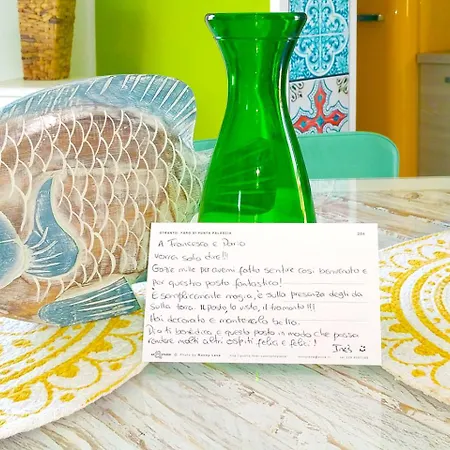 OTRANTO - FARO DI PUNTA PALASCIA
A Francesco e Dario
vorrei solo dire!!!
Grazie mille per avermi fatto sentire così benvenuta e
per questo posto fantastico!
È semplicemente magia, è sulla presenza degli dà
sulla terra. Il posto, la vista, il tramonto!!!
Hai decorato e mantenuto bello.
Dio ti benedica e questo posto in modo che possa
rendere molti altri ospiti felici e felici!
Inês